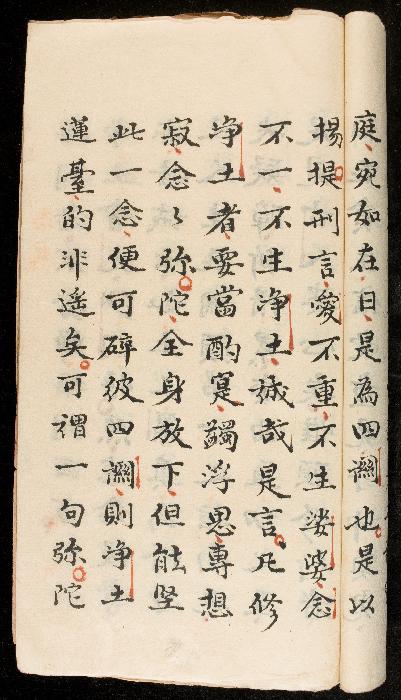 庭宛如在日是為四關也是以
揚提刑言愛不重不生娑婆念
不一不生净土誠哉是言凡修
净土者要當酌寔蠲浮思專想
寂念〻弥陀全身放下但能坚
此一念便可碎彼四關則净土
蓮臺的非遥矣可謂一句弥陀